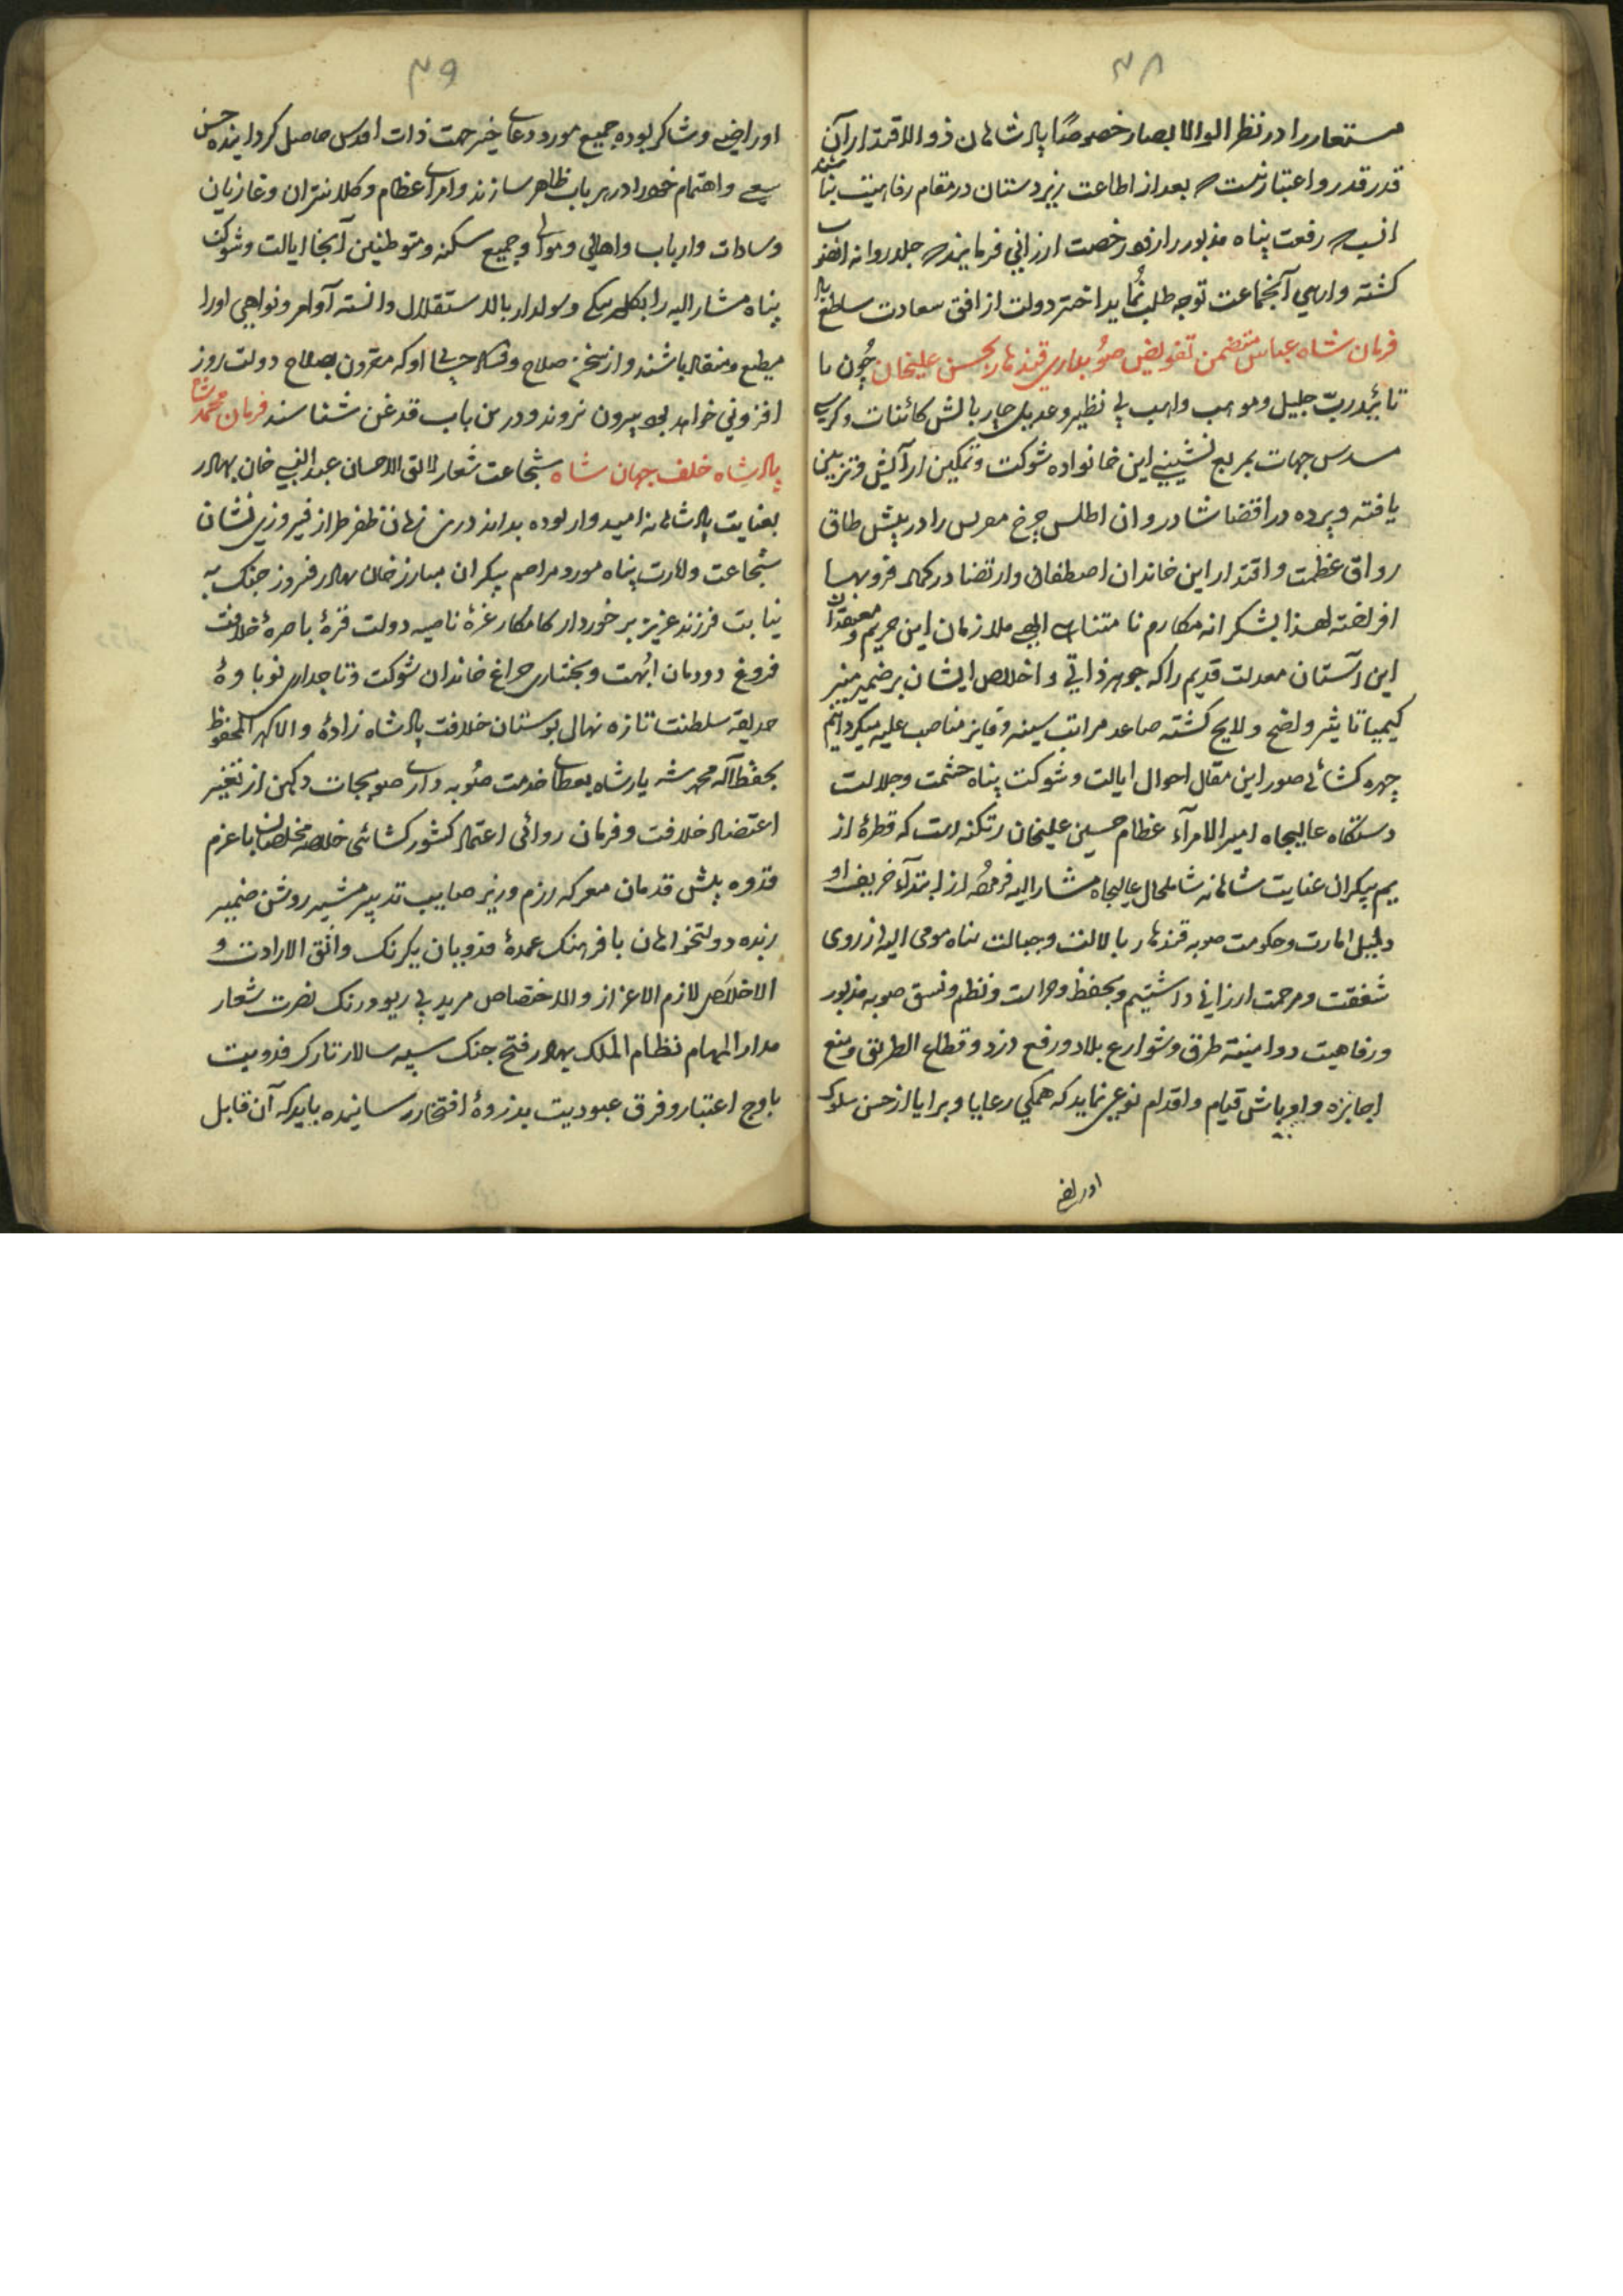 ۴۸
مستعار را در نظر الوالابصار خصوصًا پادشاهان ذوالاقتدار آن
قدر قدر و اعتبار نیست بعد از اطاعت زیردستان در مقام رفاهیت
انسب رفعت پناه مذبور را زود رخصت ارزانی فرمایند جلد روانه
کشته وارسی آنجماعت توجه طلب نماید اختر دولت از افق سعادت ساطع باد
فرمان شاه عباس متضمن تفویض صوبه داری قندهار بحسن علیخان چون با
تائید رب جلیل و مواهب واهب بی نظیر و عدیل چار بالش کائنات و کرسی
مسدس جهات بمربع نشینی این خانواده شوکت و تمکین آرایش و تزیین
یافته و پرده در اقتضا شادروان اطلس چرخ را در پیش طاق
رواق عظمت و اقتدار این خاندان اصطفا و ارتضا در کمال فر و بها
افراخته لهذا بشکرانه مکارم نامتناهی الهی ملازمان این حریم و معتقدان
این آستان معدلت قدیم را که جوهر ذاتی و اخلاص ایشان بر ضمیر منیر
کیمیا تاثیر واضح و لایح کشته صاعد مراتب سنیه و فایز مناصب علیه میکردانیم
چهره کشائی صور این مقال احوال ایالت و شوکت پناه حشمت و جلالت
دستکاه عالیجاه امیر الامرآء عظام حسین علیخان زنکنه است که قطرهٔ از
یم بیکران عنایت شاهانه شاملحال عالیجاه مشار الیه فرموده از ابتدآء خریف او
دئیل امارت و حکومت صوبه قندهار با لالت و جبالت پناه مومی الیه از روی
شفقت و مرحمت ارزانی داشتیم و بحفظ و حراست و نظم و نسق صوبه مذبور
و رفاهیت و امنیت طرق و شوارع بلاد و رفع دزد و قطاع الطریق و منع
اجابزه و اوباش قیام و اقدام نوعی نماید که همکی رعایا و برایا از حسن سلوک
او راضی
۴۹
او راضی و شاکر بوده جمیع مورد دعای خیر جهت ذات اقدس حاصل کردانیده حسن
سعی و اهتمام خود را در هر باب ظاهر سازند و امرای عظام و کلانتران و غازیان
و سادات و ارباب و اهالی و موالی و جمیع سکنه و متوطنین آنجا ایالت و شوکت
پناه مشار الیه را بیکلربیکی و صوبه‌دار بالاستقلال دانسته اوامر و نواهی او را
مطیع و منقاد باشند و از سخن صلاح و فساد او که مقرون بصلاح دولت روز
افزونی خواهد بود بیرون نروند و درین باب قدغن شناسند فرمان محمد شاه
پادشاه خلف جهان شاه شجاعت شعار لائق الاحسان عبدالنبی خان بهادر
بعنایت پادشاهانه امیدوار بوده بداند درین زمان ظفر طراز فیروزی نشان
شجاعت و امارت پناه مورد مراحم بیکران مبارز خان بهادر فیروز جنک به
نیابت فرزند عزیز برخوردار کامکار غرهٔ ناصیه دولت قرهٔ باصرهٔ خلافت
فروغ دودمان ابهت و بختیاری چراغ خاندان شوکت و تاجداری نوباوهٔ
حدیقه سلطنت تازه نهال بوستان خلافت پادشاه زادهٔ والا کهر المحفوظ
بحفظ اله محمد شه یار شاه بعطای خدمت صوبه داری صوبجات دکهن از تغییر
اعتضاد خلافت و فرمان روائی اعتماد کشور کشائی خلاصه مخلصان با عزم
قدوه پیش قدمان معرکه رزم وزیر صایب تدبیر مشیر روشن ضمیر
زبده دولتخواهان با فرهنک عمدهٔ فدویان یکرنک واثق الارادت و
الاخلاص لازم الاعزاز والاختصاص مرید بی ریو و رنک نصرت شعار
مدار المهام نظام الملک بهادر فتح جنک سپه سالار تارک فدویت
باوج اعتبار و فرق عبودیت بذروهٔ افتخار رسانیده باید که آن قابل